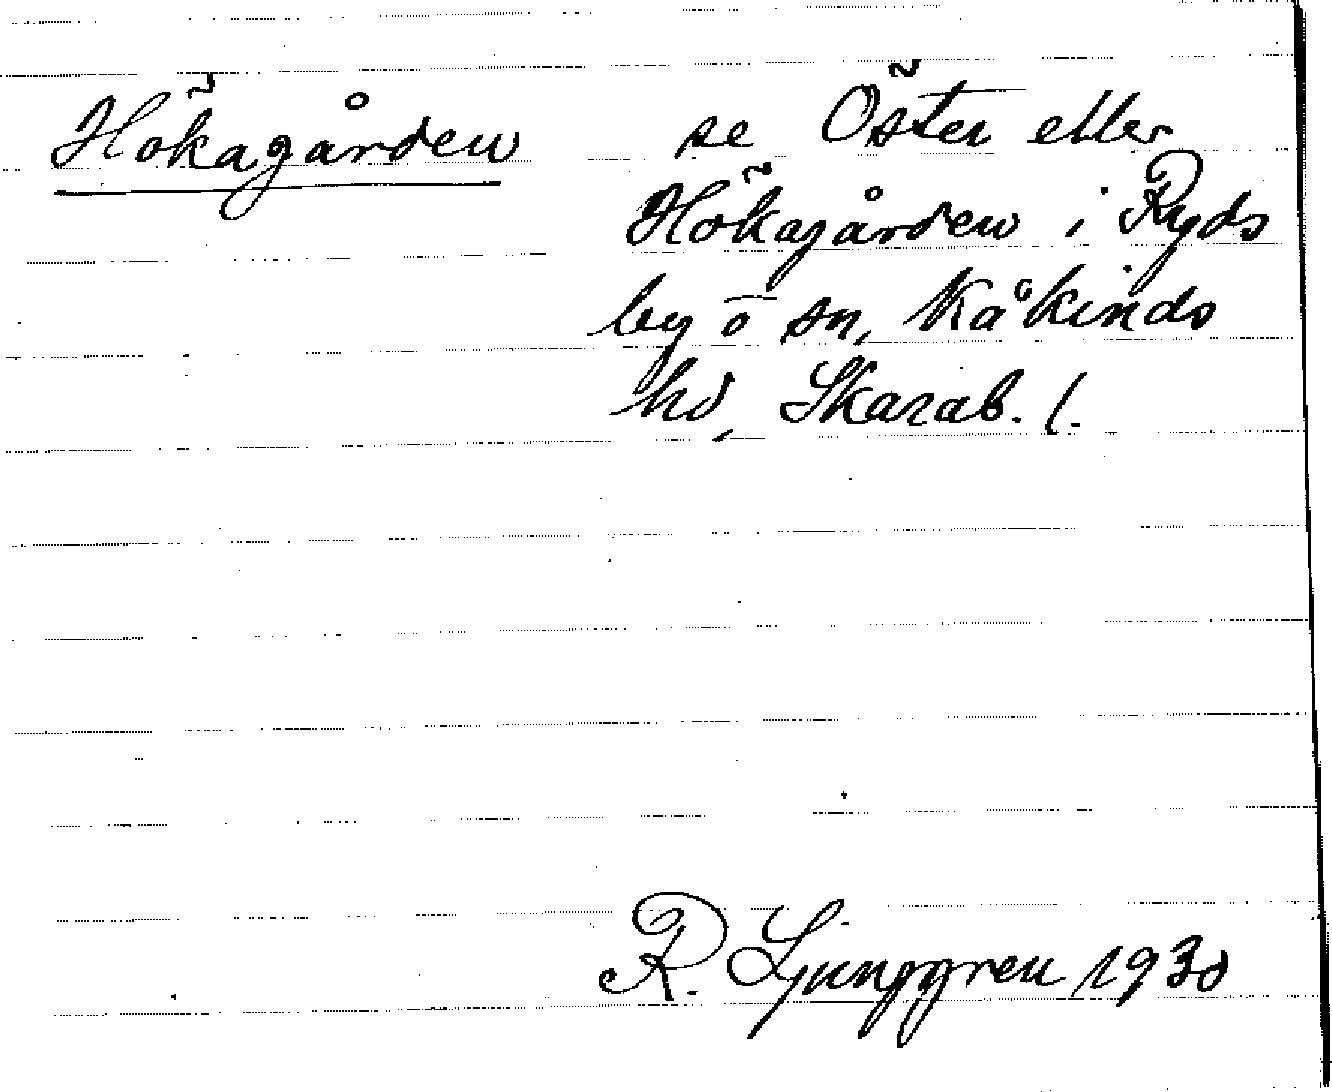 Hökagården se Öster eller
Hökagården i Ryds
by o sn, Kåkinds
hd, Skarab. l.
R. Ljunggren 1930